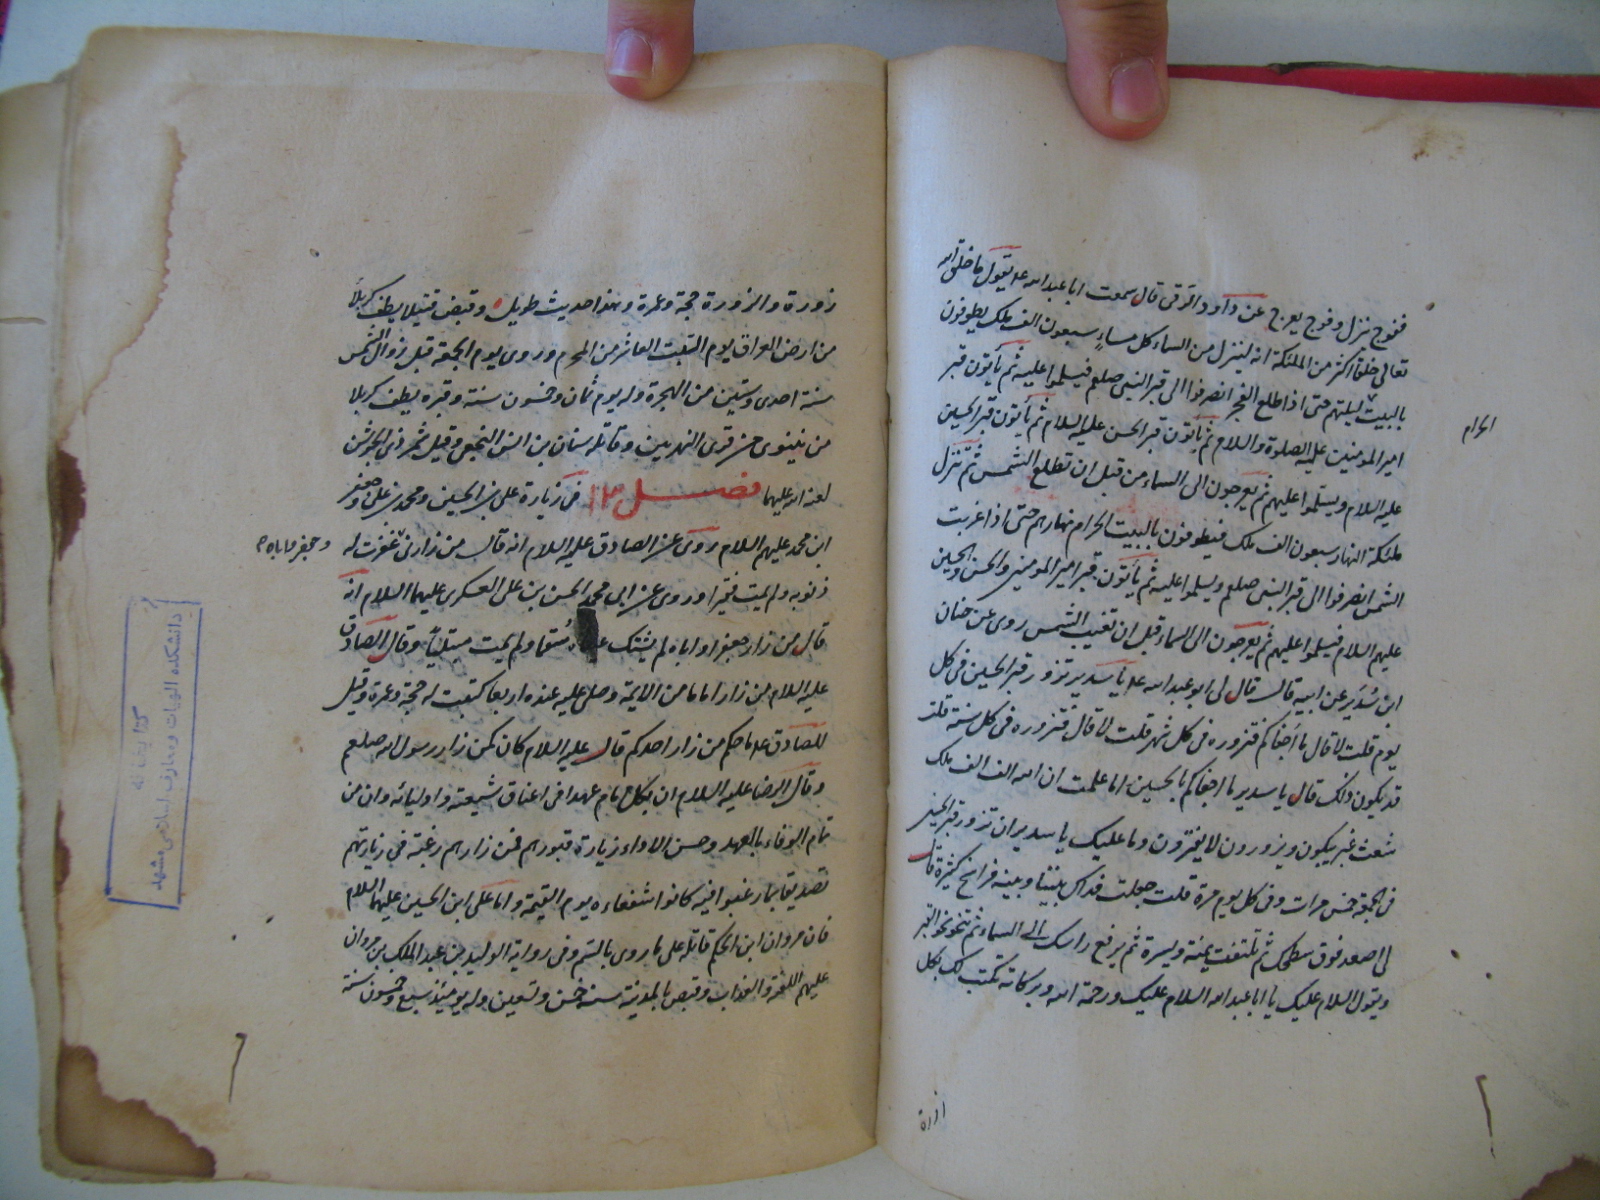 ففوج ينزل وفوج يعرج عن داود الرقى قال سمعت ابا عبد الله ع يقول ما خلق الله
تعالى خلقا اكثر من الملئكة انه لينزل من السماء كل مساء سبعون الف ملك يطوفون
بالبيت ليلتهم حتى اذا طلع الفجر انصرفوا الى قبر النبى صلعم فيسلموا عليه ثم يأتون قبر
الحرام
امير المومنين عليه الصلوة والسلام ثم يأتون قبر الحسن عليه السلام ثم يأتون قبر الحسين
عليه السلام ويسلموا عليهم ثم يعرجون الى السماء من قبل ان تطلع الشمس ثم تنزل
ملئكة النهار سبعون الف ملك فيطوفون بالبيت الحرام نهارهم حتى اذا غربت
الشمس انصرفوا الى قبر النبى صلعم ويسلموا عليه ثم يأتون قبر امير المومنين والحسن والحسين
عليهم السلام فيسلموا عليهم ثم يعرجون الى السماء قبل ان تغيب الشمس روى عن حنان
ابن سدير عن ابيه قال قال لى ابو عبد الله ع يا سدير تزور قبر الحسين فى كل
يوم قلت لا قال ما أجفاكم فتزوره فى كل شهر قلت لا قال فتزوره فى كل سنة قلت
قد يكون ذلك قال يا سدير ما اجفاكم بالحسين اما علمت ان لله الف الف ملك
شعث غبر يبكون ويزورون لا يفترون وما عليك يا سدير ان تزور قبر الحسين
فى الجمعة خمس مرات وفى كل يوم مرة قلت جعلت فداك بيننا وبينه فراسخ كثيرة قال
لى اصعد فوق سطحك ثم تلتفت يمنة ويسرة ثم يرفع راسك الى السماء ثم تنحو نحو القبر
وتقول السلام عليك يا ابا عبد الله السلام عليك ورحمة الله وبركاته تكتب لك بكل
زورة والزورة حجة وعمرة وهذا حديث طويل وقبض قتيلا بطف كربلا
من ارض العراق يوم السبت العاشر من المحرم وروى يوم الجمعة قبل زوال الشمس
سنة احدى وستين من الهجرة وله يومئذ ثمان وخمسون سنة وقبره بطف كربلا
من نينوى من قرى النهرين وقاتله سنان بن انس النخعى وقيل شمر ذى الجوشن
لعنة الله عليهما فصل فى زيارة على بن الحسين ومحمد بن على وجعفر
ابن محمد عليهم السلام روى عن الصادق عليه السلام انه قال من زارنى غفرت له
ذنوبه ولم يمت فقيرا وروى عن ابى محمد الحسن بن على العسكرى عليهما السلام انه
قال من زار جعفرا واباه لم يشتك سقما ولم يمت مبتليا وقال الصادق
عليه السلام من زار اماما من الائمة وصلى عليه عنده اربعا كتبت له حجة وعمرة وقيل
للصادق ع ما حكم من زار احدكم قال عليه السلام كان كمن زار رسول الله صلعم
وقال الرضا عليه السلام ان لكل امام عهدا فى اعناق شيعته واوليائه وان من
تمام الوفاء بالعهد وحسن الاداء زيارة قبورهم فمن زارهم رغبة فى زيارتهم
تصديقا بما رغبوا فيه كانوا شفعاءه يوم القيمة واما على ابن الحسين عليهما السلام
فان مروان ابن الحكم قاتله على ما روى بالسم وفى رواية الوليد بن عبد الملك بن مروان
عليهم اللعنة والعذاب وقبض بالمدينة سنة خمس وتسعين وله يومئذ سبع وخمسون سنة
كتابخانه
دانشكده الهيات ومعارف اسلامى مشهد